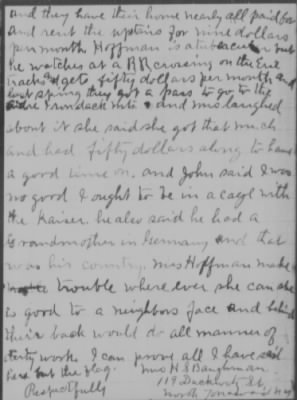 and they have their home nearly all paid for
and rent the upstairs for nine dollars
per month Hoffman is a but
he watches at a RR crossing on the Erie
tracks gets fifty dollars per month and
last spring they got a pass to go to the
and mrs laughed
about it she said she got that much
and had fifty dollars along to have
a good time on. and John said I was
no good I ought to be in a cage with
the Kaiser. he also said he had a
Grandmother in Germany and that
was his country. Mrs Hoffman make
trouble where ever she can she
is good to a neighbors face and behind
their back would do all manner of
dirty work. I can prove all I have said
here but the flag. Mrs H S Baughman.
Respectfully 119 St.
North